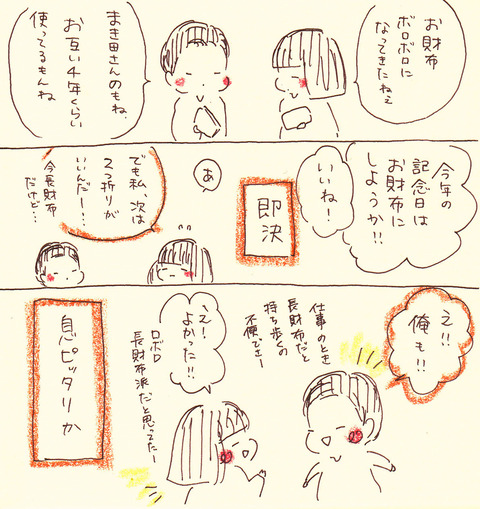 お財布
ボロボロに
なってきたねぇ
まき田さんのもね
お互い4年くらい
使ってるもんね
今年の
記念日は
お財布に
しようか!!
いいね!
即決
あ
でも私、次は
2つ折りが
いいんだー…
今長財布
だけど…
え!!
俺も!!
仕事のとき
長財布だと
持ち歩くの
不便でさー
え!
よかった!!
ロボロ
長財布派だと思ってたー
息ピッタリか